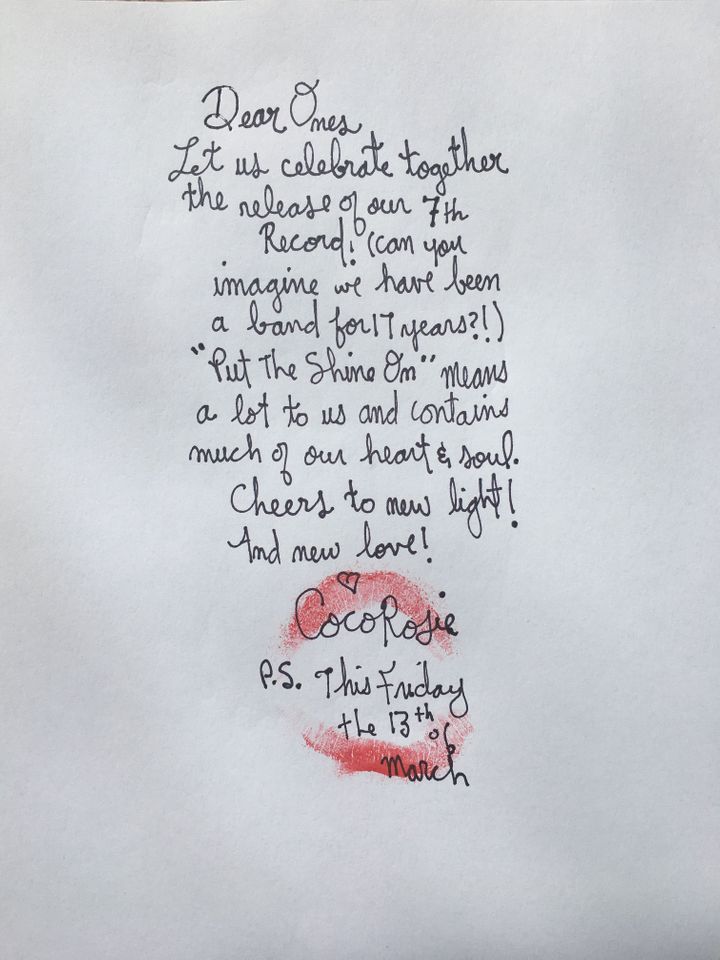 Dear Ones
Let us celebrate together
the release of our 7th
Record! (can you
imagine we have been
a band for 17 years?!)
"Put The Shine On" means
a lot to us and contains
much of our heart & soul.
Cheers to new light!
And new love!
CocoRosie
P.S. This Friday
the 13th
of
March